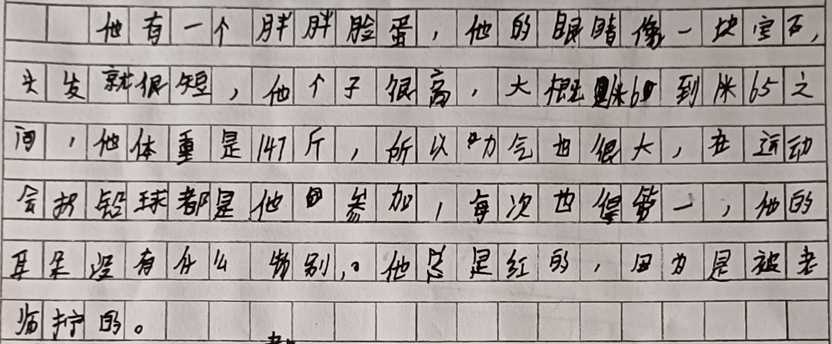 他有一个胖胖脸蛋，他的眼睛像一块宝石，
头发就很短，他个子很高，大概1米60到1米65之
间，他体重是147斤，所以力气也很大，在运动
会扔铅球都是他参加，每次也得第一，他的
耳朵没有什么特别，。他总是红的，因为是被老
师拧的。